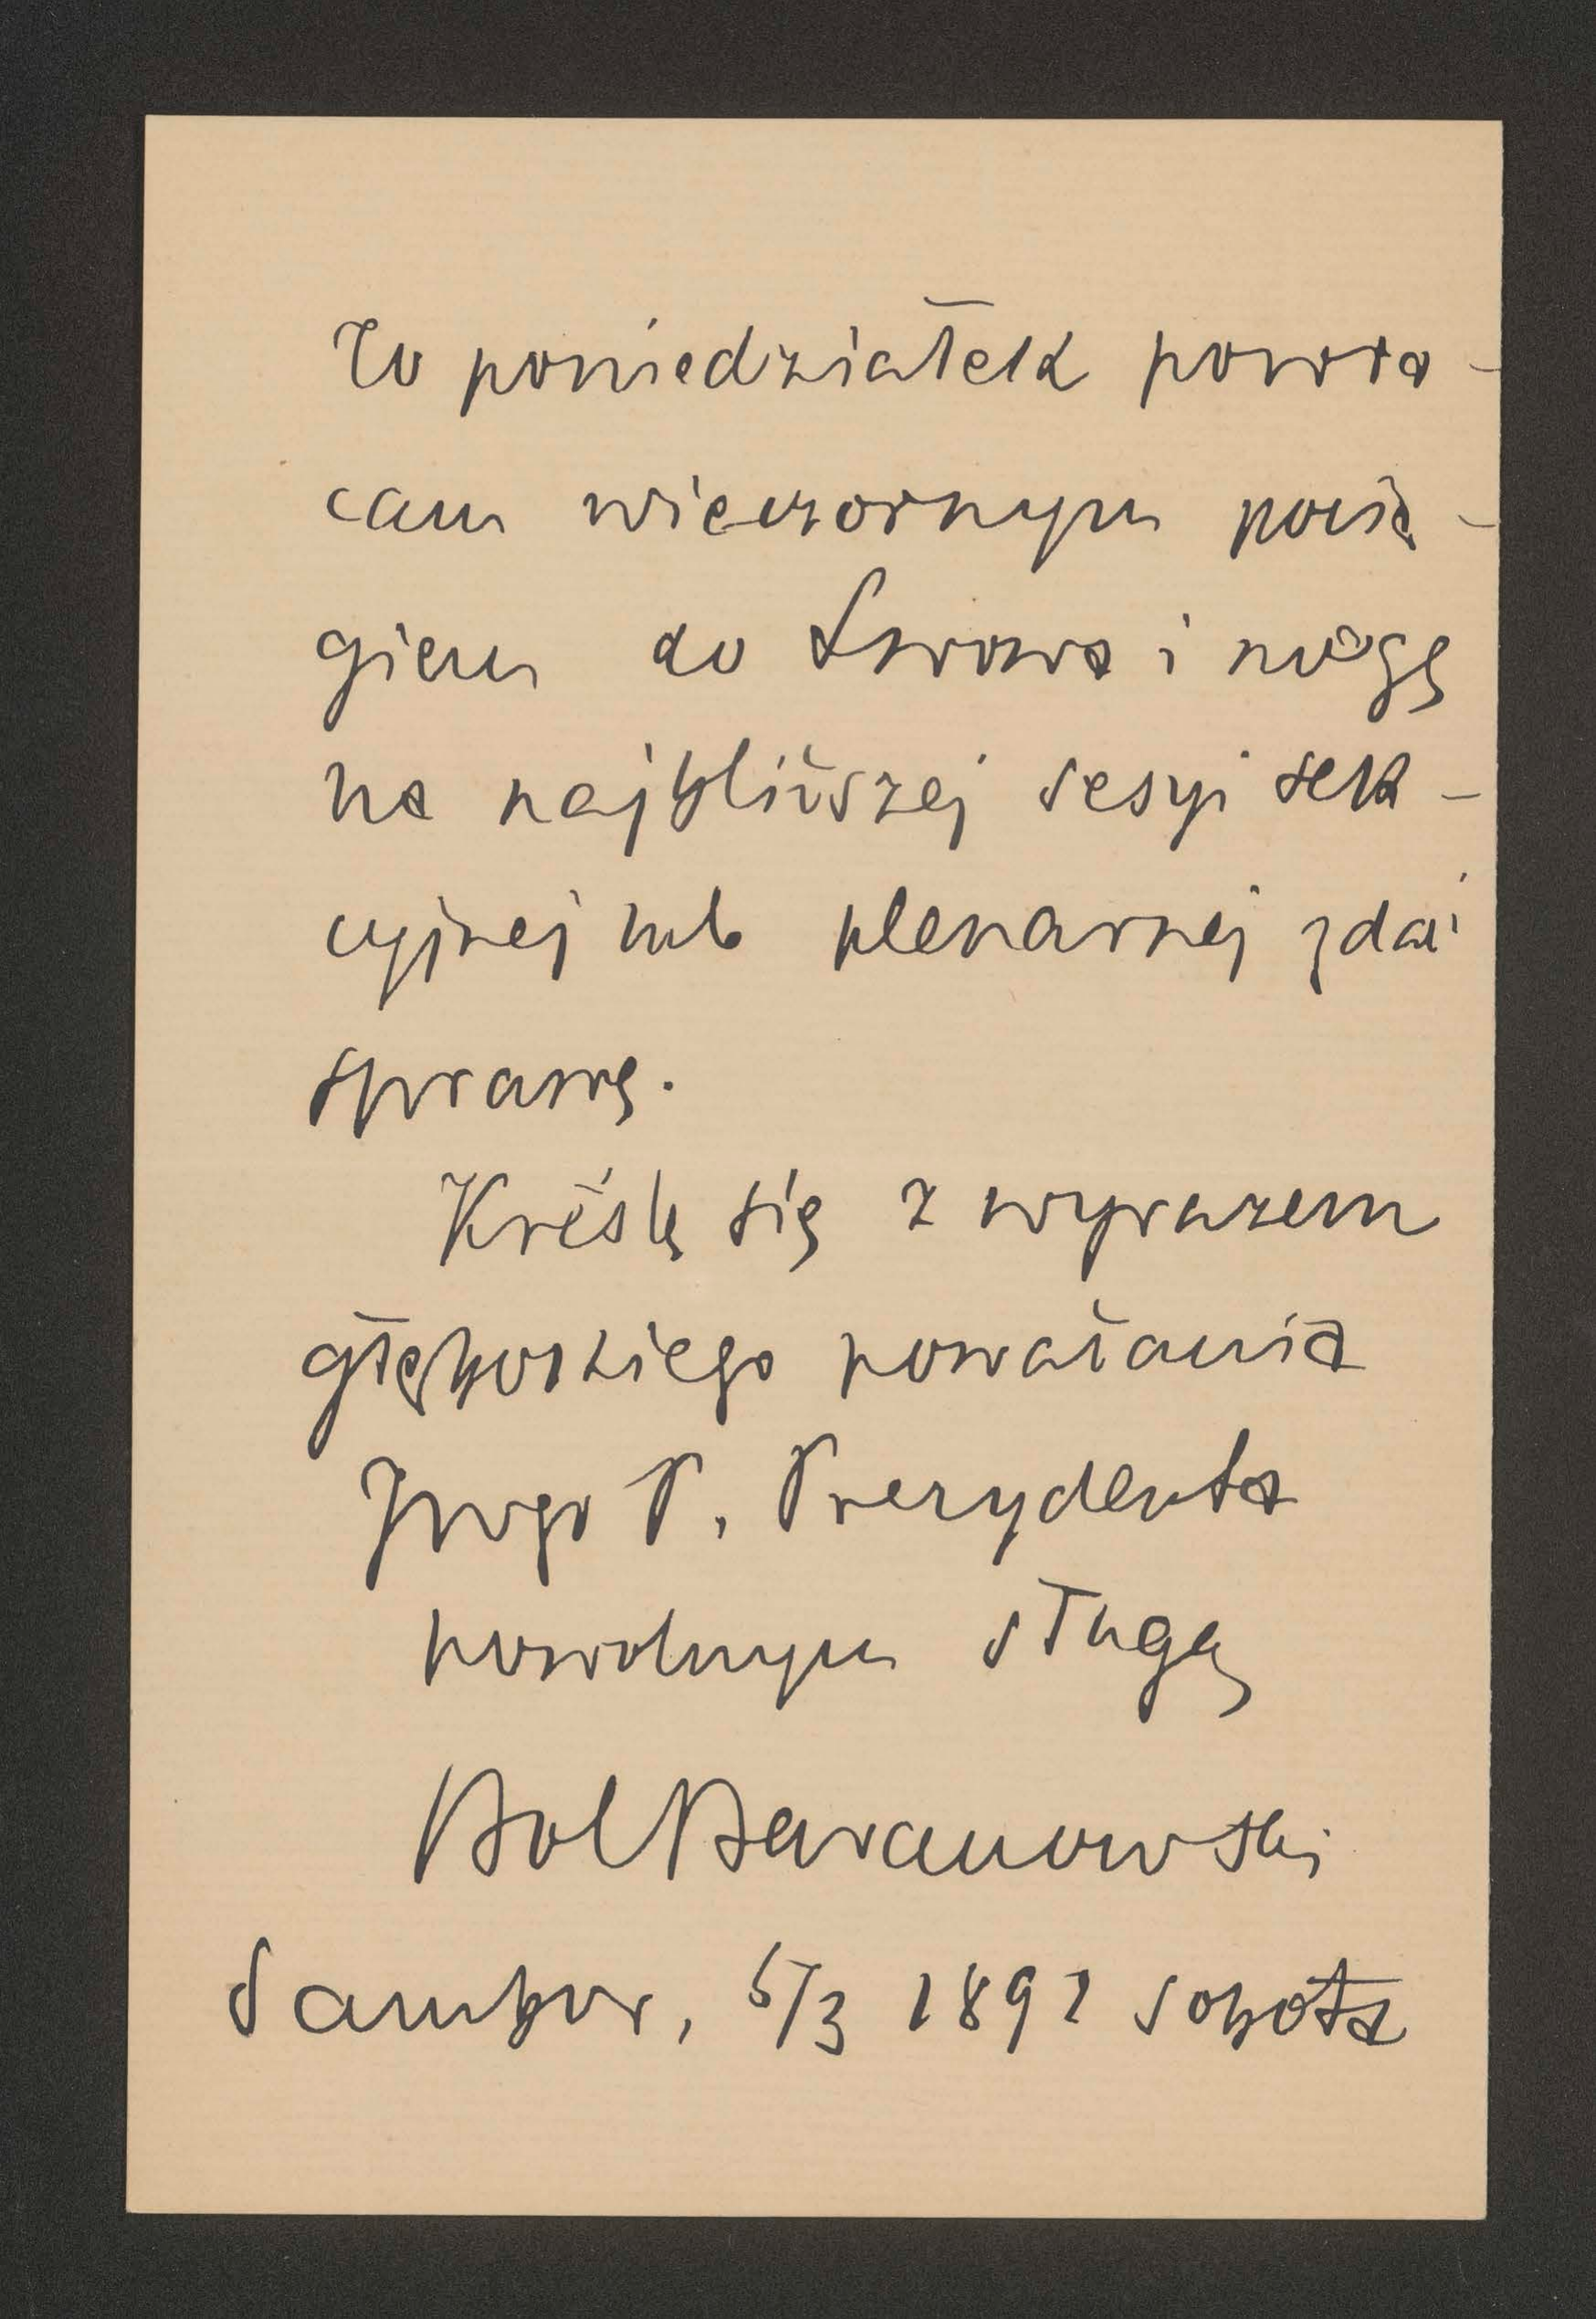 W poniedziałek powra-
cam wieczornym pocią-
giem do Lwowa i mogę
na najbliższej sesyi sek-
cyjnej lub plenarnej zdać
sprawę.
Kréślę się z wyrazem
głębokiego poważania
JWgo P. Prezydenta
powolnym sługą
Bol Baranowski
Sambor, 5/3 1892 sobota